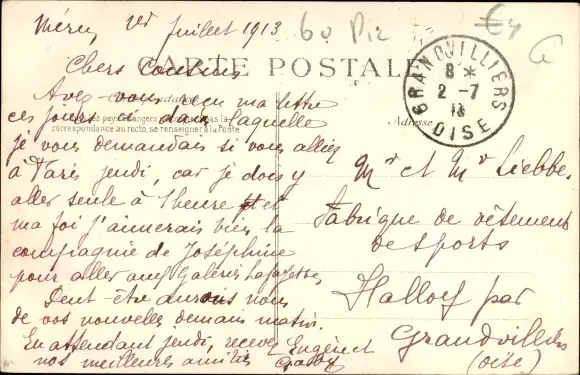 Méru, 1er Juillet 1913
60 Pic
€4
CARTE POSTALE
Chers Cousins
Avez-vous reçu ma lettre
ces jours ci dans laquelle
correspondance au recto, se renseigner à la Poste
je vous demandais si vous alliez
à Paris jeudi, car je dois y
aller seule à 1 heure et
ma foi j'aimerais bien la
compagnie de Joséphine
pour aller aux Galeries Lafayette.
Peut-être aurons nous
de vos nouvelles demain matin.
En attendant jeudi, recevez
nos meilleures amitiés
Eugène et
Gaby
GRANDVILLIERS
8 *
2 -7
13
OISE
Adresse
Mr et Mr Liebbe
Fabrique de vêtements
de sports
Halloy par
Grandvilliers
(Oise)